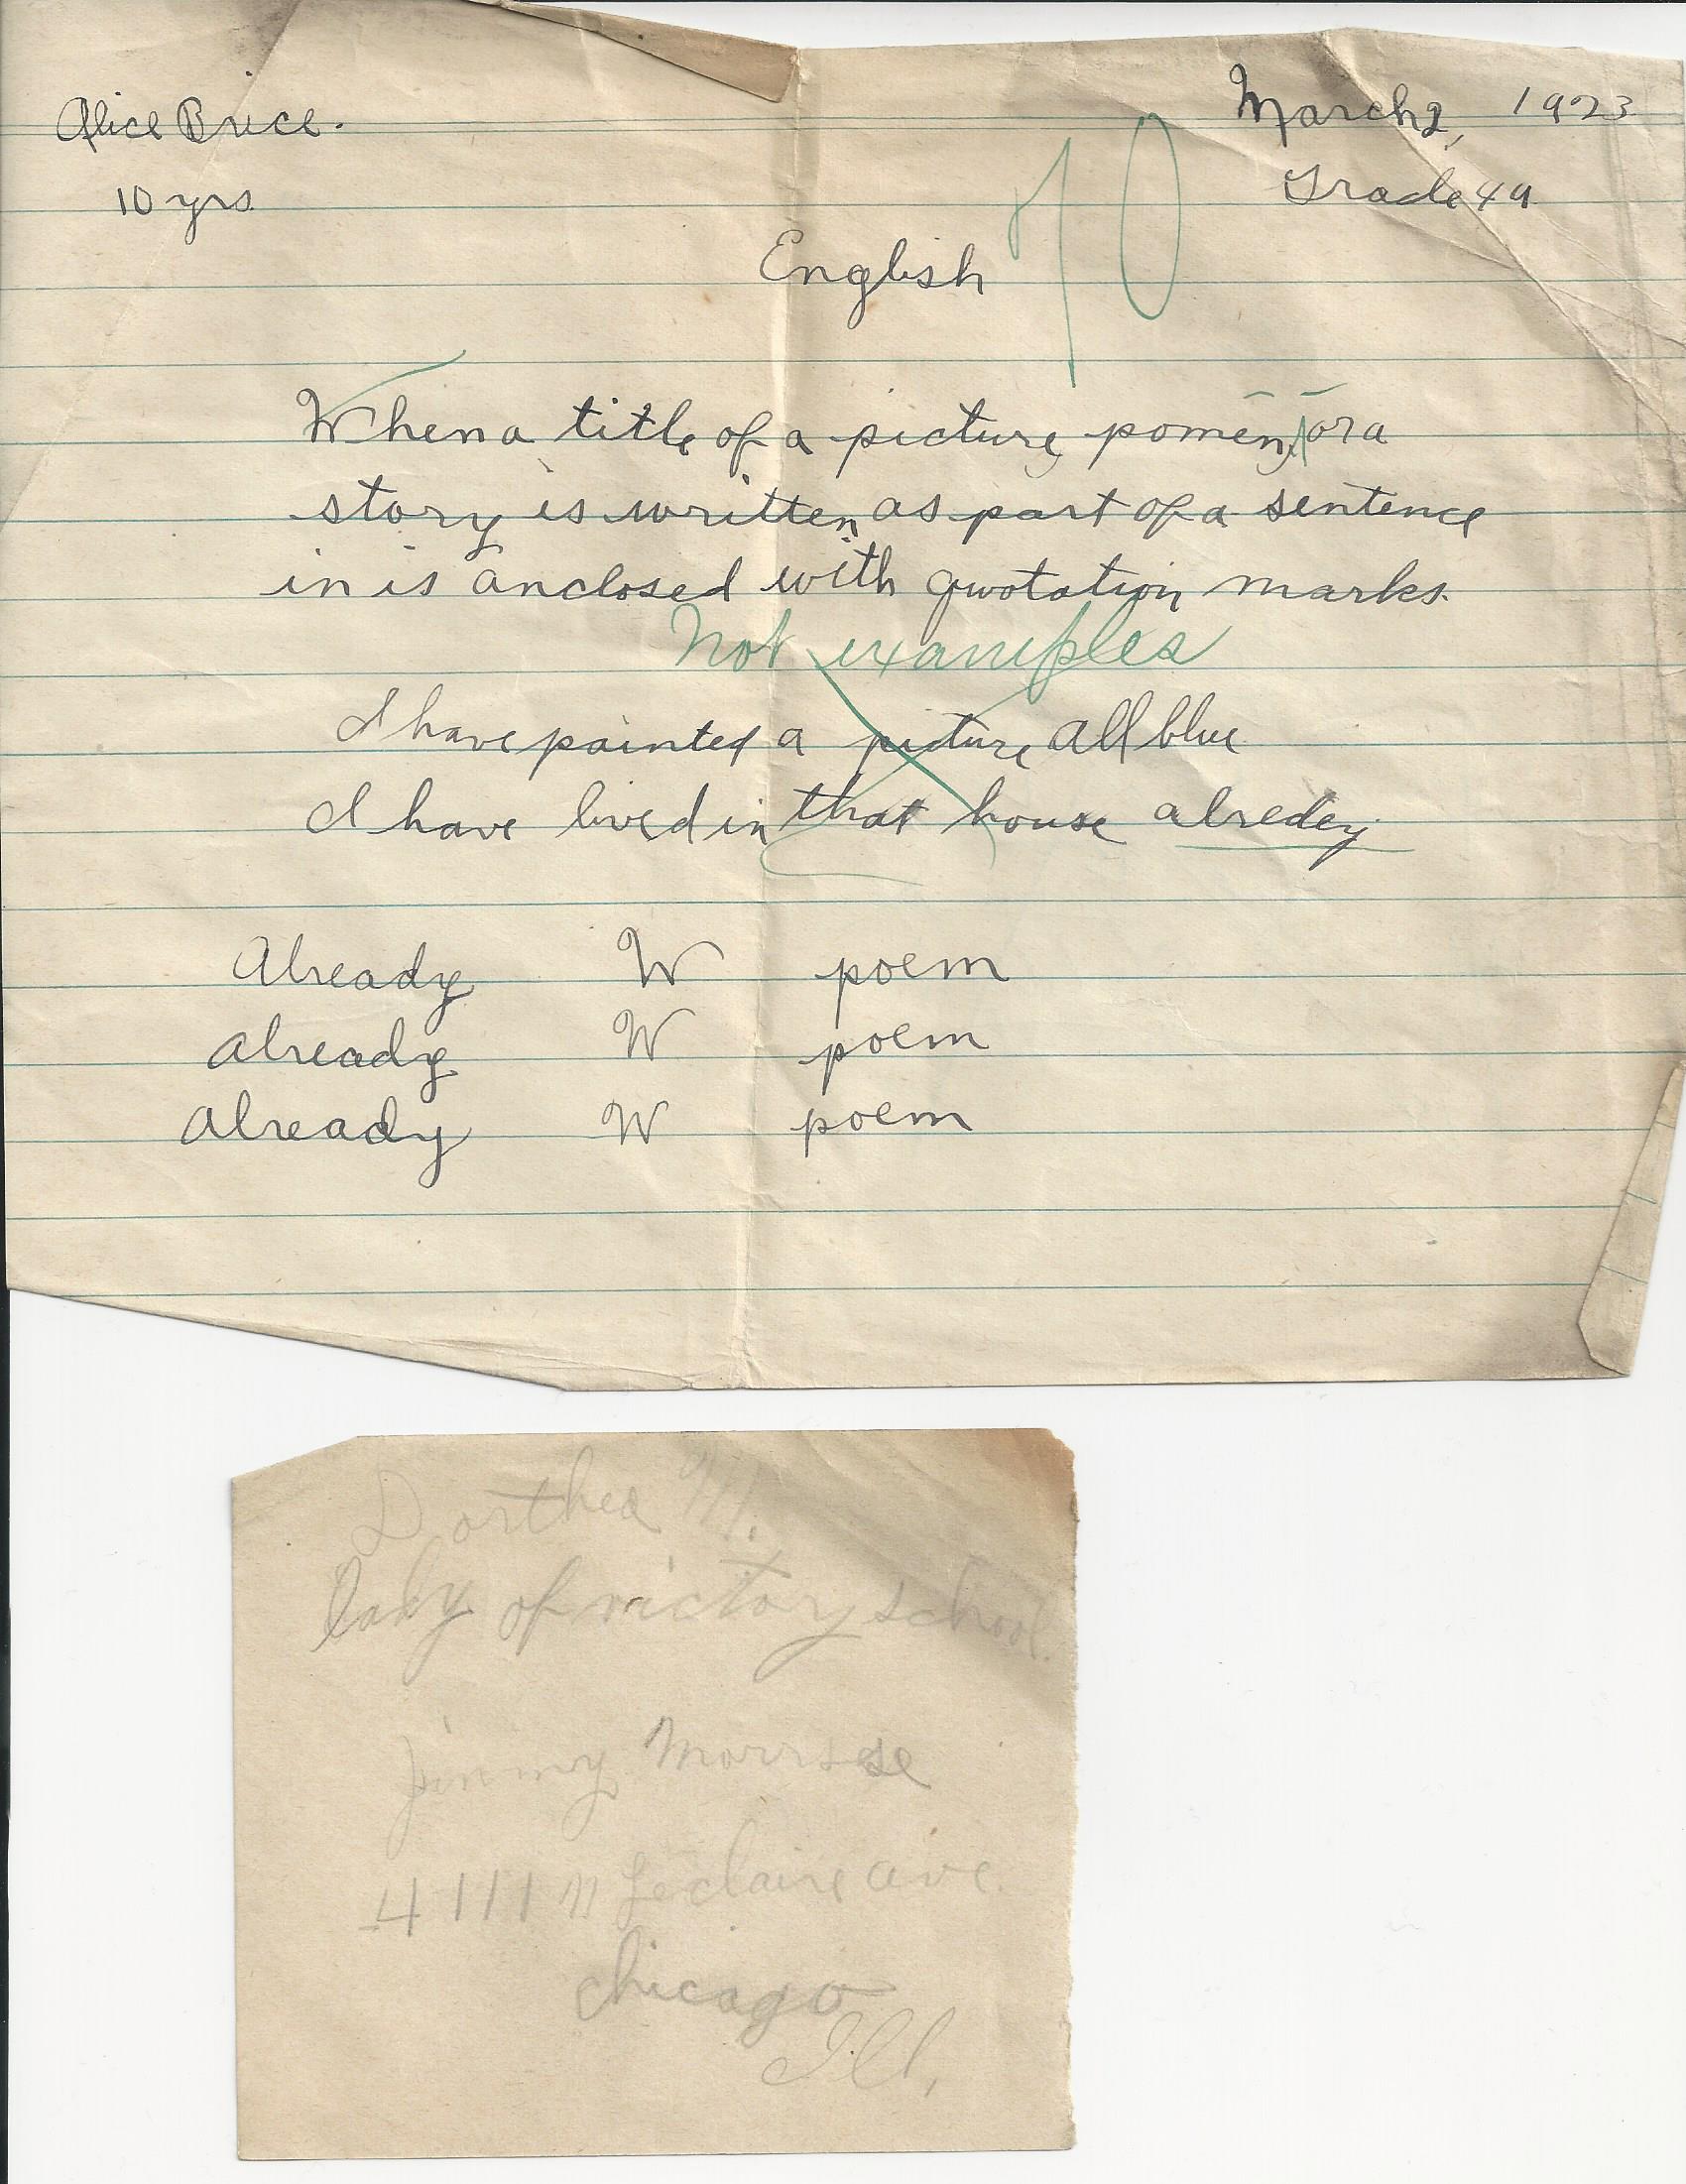 Alice Brice.
March 2, 1923
10 yrs.
Grade 4a
English
70
When a title of a picture, pomen, or a
story is written as part of a sentence
in is anclosed with quotation marks.
Not examples
I have painted a picture all blue
I have lived in that house alredey
Already W poem
Already W poem
Already W poem
Dorthea M.
Lady of victory school.
Jimmy
4111 N Leclaire ave.
Chicago
Ill.